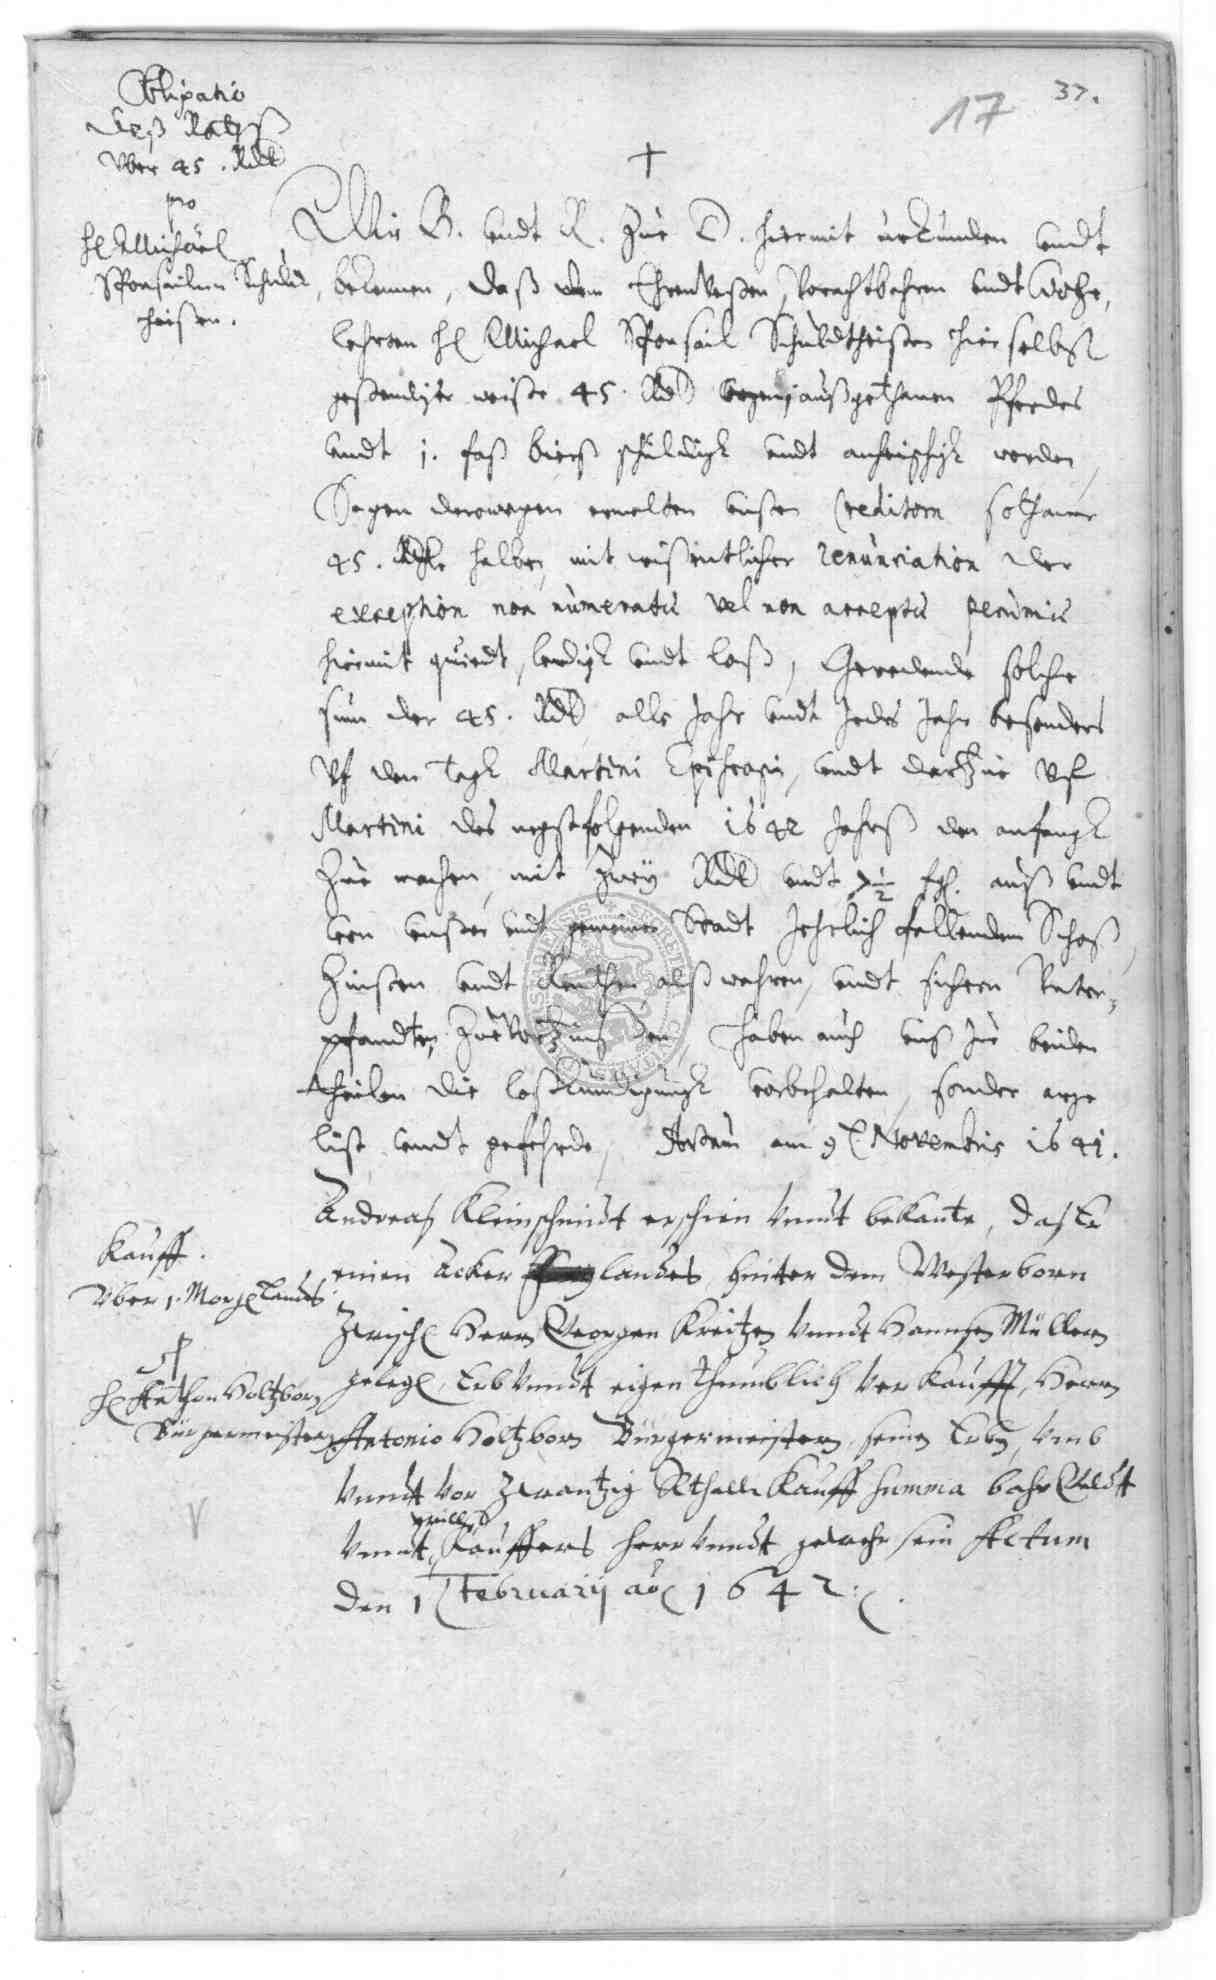 17 37.
Obligatio
deß Rathß
Vber 45. Rdl
pro
H Michäel
Sponsailen Schuld
theißen.
†
Wir B. undt R. zue D. hiermit urkunden undt
bekennen, daß dem Ehrenvesten, Vorachtbahren undt Wohlge,
lehrten H Michael Sponsail Schuldtheißen hierselbst
gestendiger weiße 45. Rdl wegen außgethanen Pferdes
undt 1. faß biers schuldigk undt anheischigk worden,
Sagen derowegen ermelten unsern Creditorn solhaner
45. Rthlr halber, mit wißentlicher renunciation der
exception non numeratæ vel non acceptæ pecuniæ
hiermit quiedt, ledigk undt loß, Geredende solche
sum der 45. Rdl alle Jahr undt Jedes Jahr besonders
Vf den Tagk Martini Episcopi, undt darzue Vff
Martini des negstfolgenden 1642 Jahrß den anfangk
Zue machen, mit zwey Rdl undt 7½ ßgl. auß undt
von unser undt gemeiner Stadt Jehrlich fallenden Schoß,
Zinsen undt Renthen alß wahren, undt sichern Unter,
pfandten zue Vorzinsen, haben auch unß zue beiden
theilen die loßkundigungk vorbehalten, sonder arge
list undt gefehrde, Actum am 9 Novembris 1641.
Kauff.
Vber 1. Morg Landes
H Anthon Holtzborn
Bürgermeistern
Andreas Kleinschmidt erschien Vnndt bekante, das Er
einen Acker landes hinter dem Westerborn
Zwisch Herrn Georgen Kreitzen Vnndt Hannsen Müllern
geleg, Erb Vnndt eigenthumblich Verkaufft, Herrn
Antonio Holtzborn Bürgermeistern, seinen Erben, Vmb
Vnndt Vor Zwantzig Rthall Kauff summa bahr Geldt
Vnndt Kauffers Herr Vnndt gewehr sein Actum
Den 1 February ao 1642.